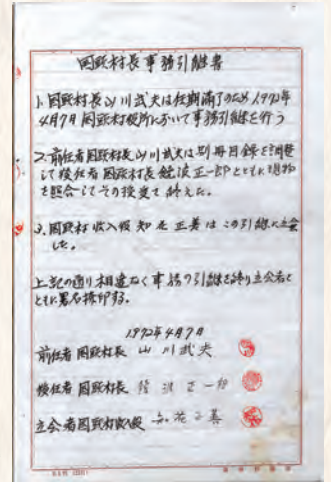 国頭村長事務引継書
1. 国頭村長山川武夫は任期満了のため1972年
4月7日国頭村役所において事務引継を行う
2. 前任者国頭村長山川武夫は別冊目録を調整
して後任者国頭村長饒波正一郎とともに現物
を照合してその授受を終えた。
3. 国頭村収入役知花正善はこの引継に立会
した。
上記の通り相違なく事務の引継を終り立会者と
ともに署名捺印する。
1972年4月7日
前任者国頭村長 山川武夫
後任者国頭村長 饒波正一郎
立会者国頭村収入役 知花正善